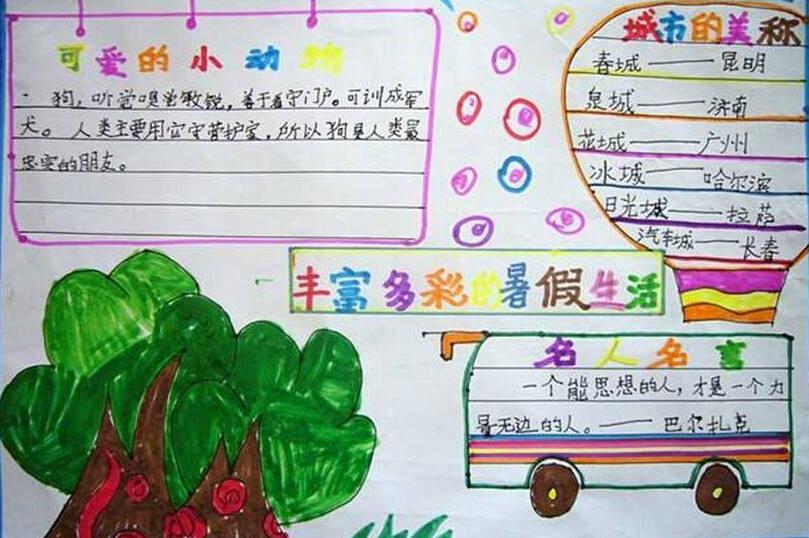 可爱的小动物
狗,听觉嗅觉敏锐,善于看守门户。可训成军
犬。人类主要用它守营护家,所以狗是人类最
忠实的朋友。
城市的美称
春城——昆明
泉城——济南
花城——广州
冰城——哈尔滨
日光城——拉萨
汽车城——长春
丰富多彩的暑假生活
名人名言
一个能思想的人,才是一个力
量无边的人。——巴尔扎克